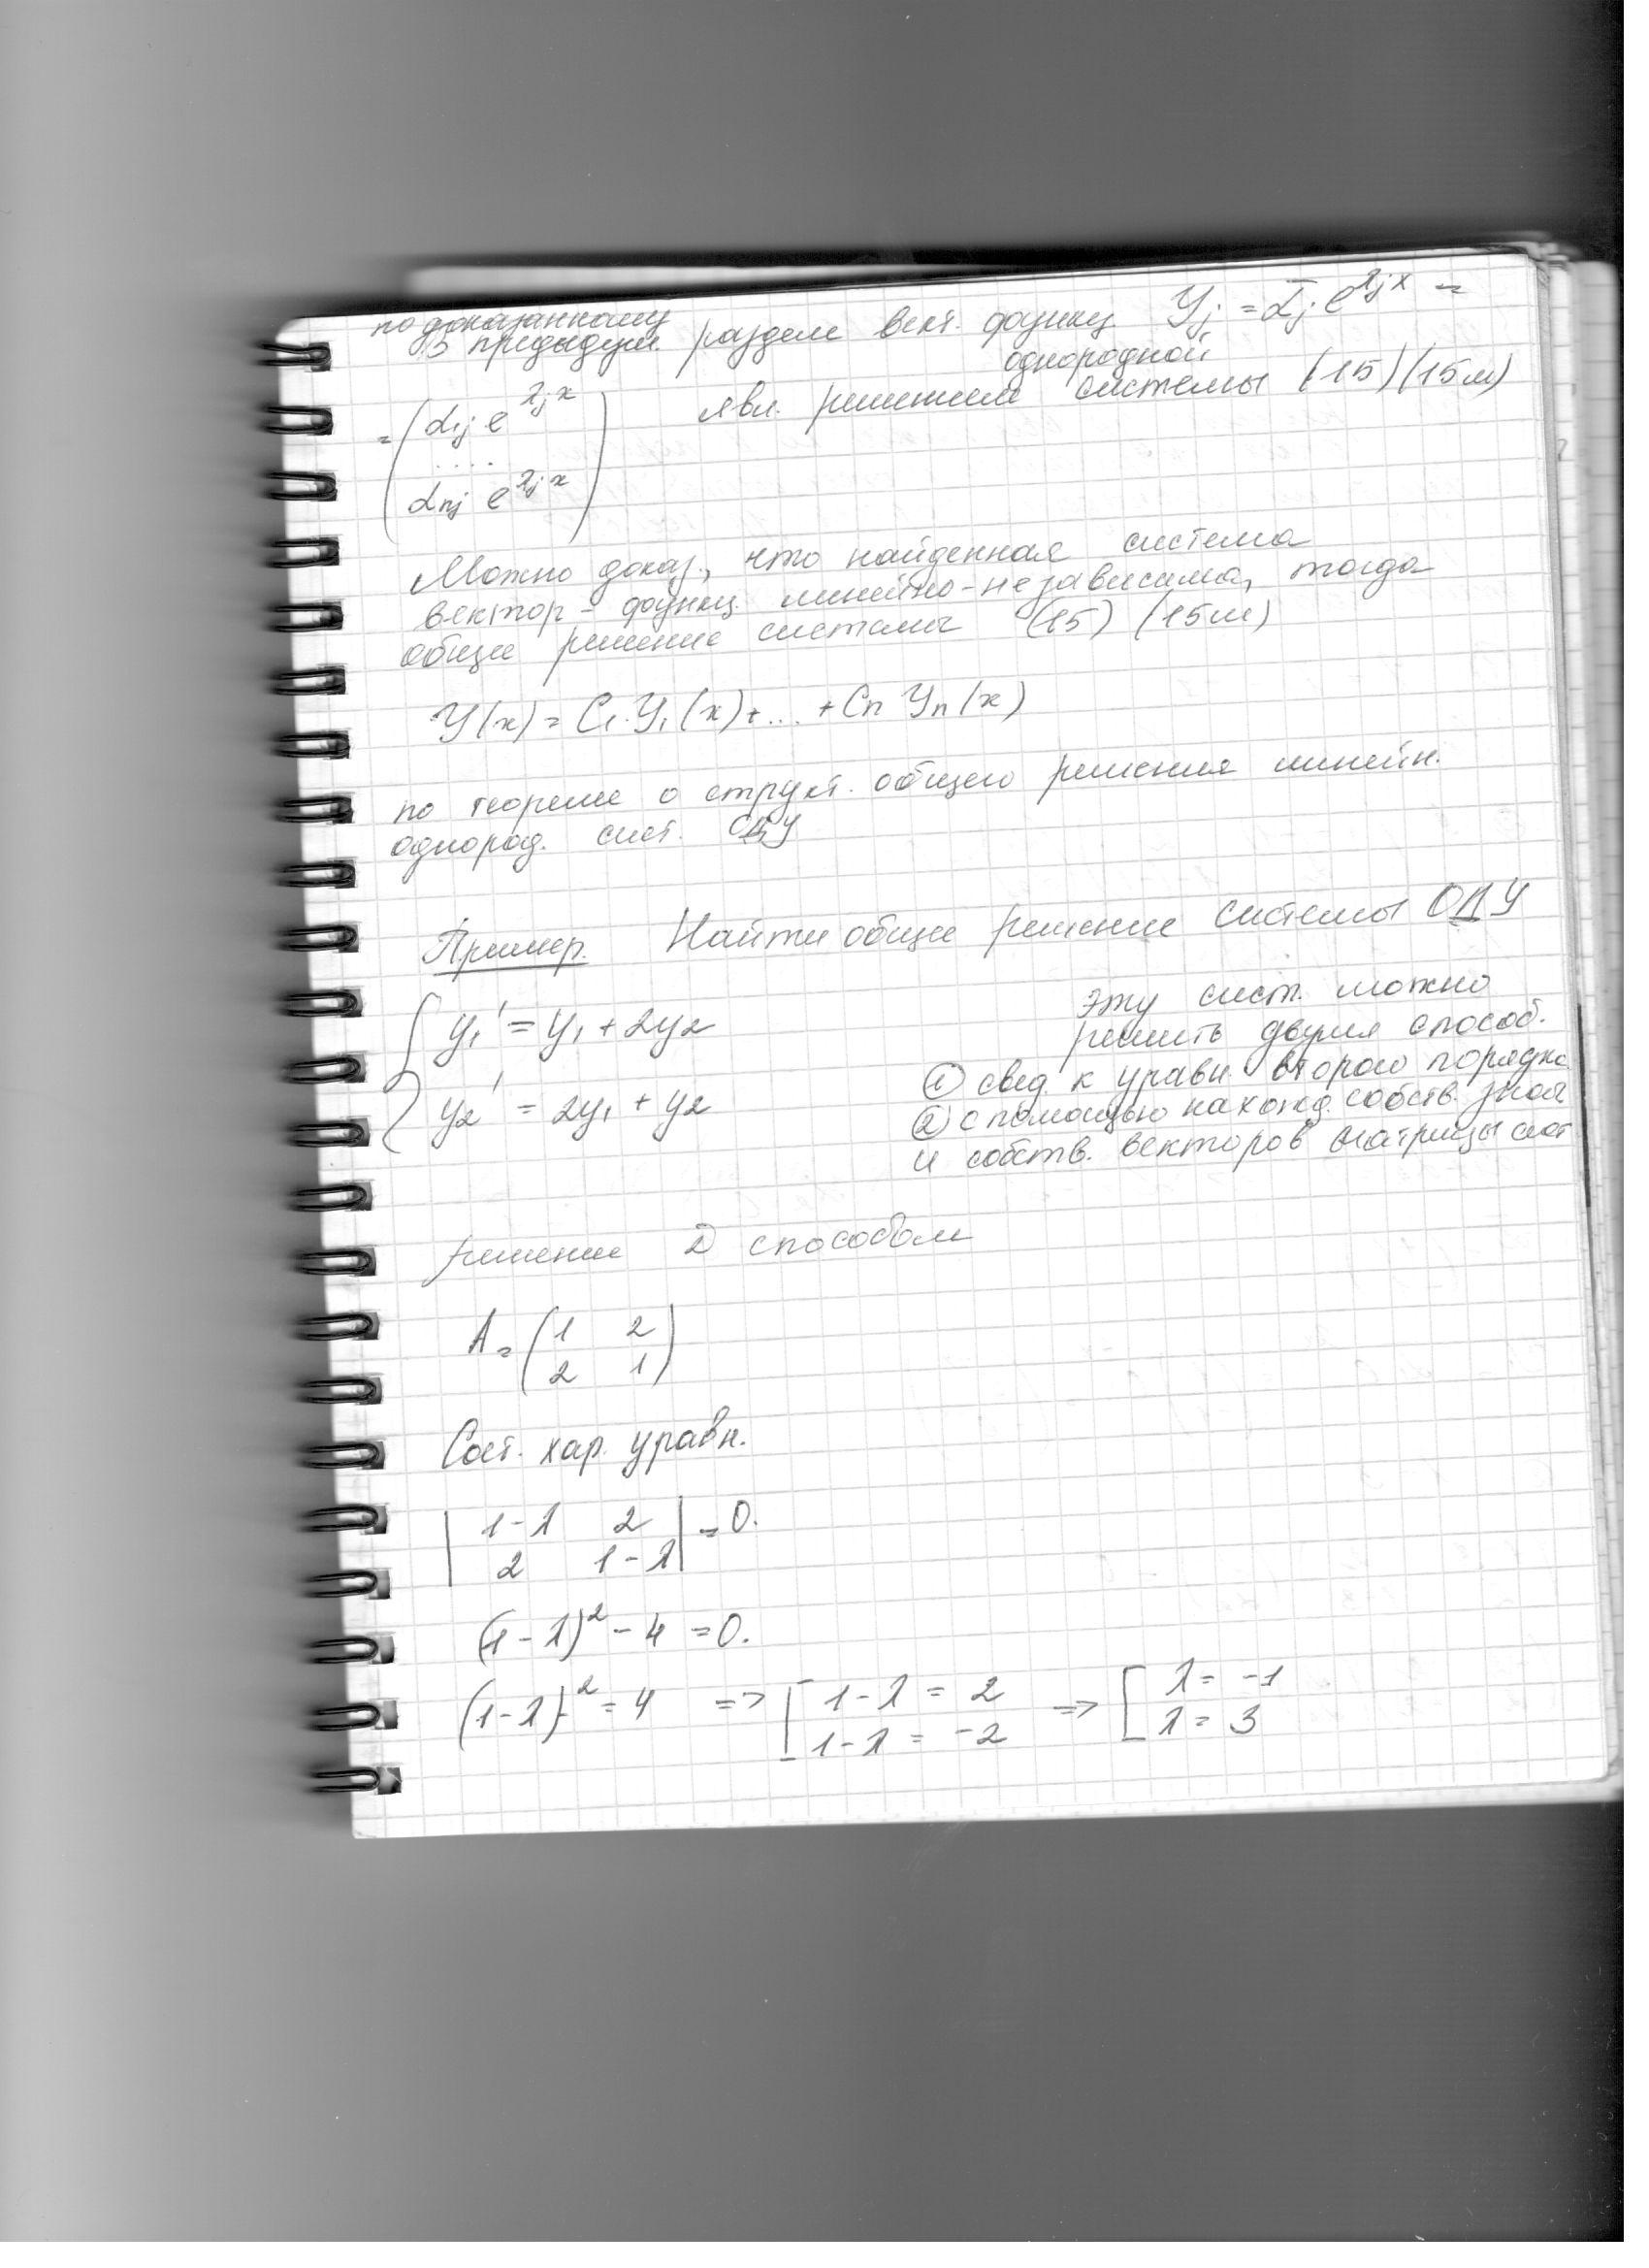 по доказанному
в предыдущ. разделе вект. функц. Yj = αj e^λjx =
однородной
= (α1j e^λjx .... αnj e^λjx) явл. решением системы (15)(15м)
Можно доказ., что найденная система
вектор-функц. линейно-независима, тогда
общее решение системы (15) (15м)
Y(x) = C1·Y1(x)+...+Cn Yn(x)
по теореме о структ. общего решения линейн.
однород. сист. ОДУ
Пример. Найти общее решение системы ОДУ
{ y1' = y1 + 2y2
y2' = 2y1 + y2
эту сист. можно
решить двумя способ.
① свед. к уравн. второго порядка
② с помощью нахожд. собств. знач
и собств. векторов матрицы сист
решение 2 способом
A = (1 2
2 1)
Сост. хар. уравн.
| 1-λ 2 | = 0.
| 2 1-λ |
(1-λ)² - 4 = 0.
(1-λ)² = 4 => [ 1-λ = 2 => [ λ = -1
1-λ = -2 λ = 3